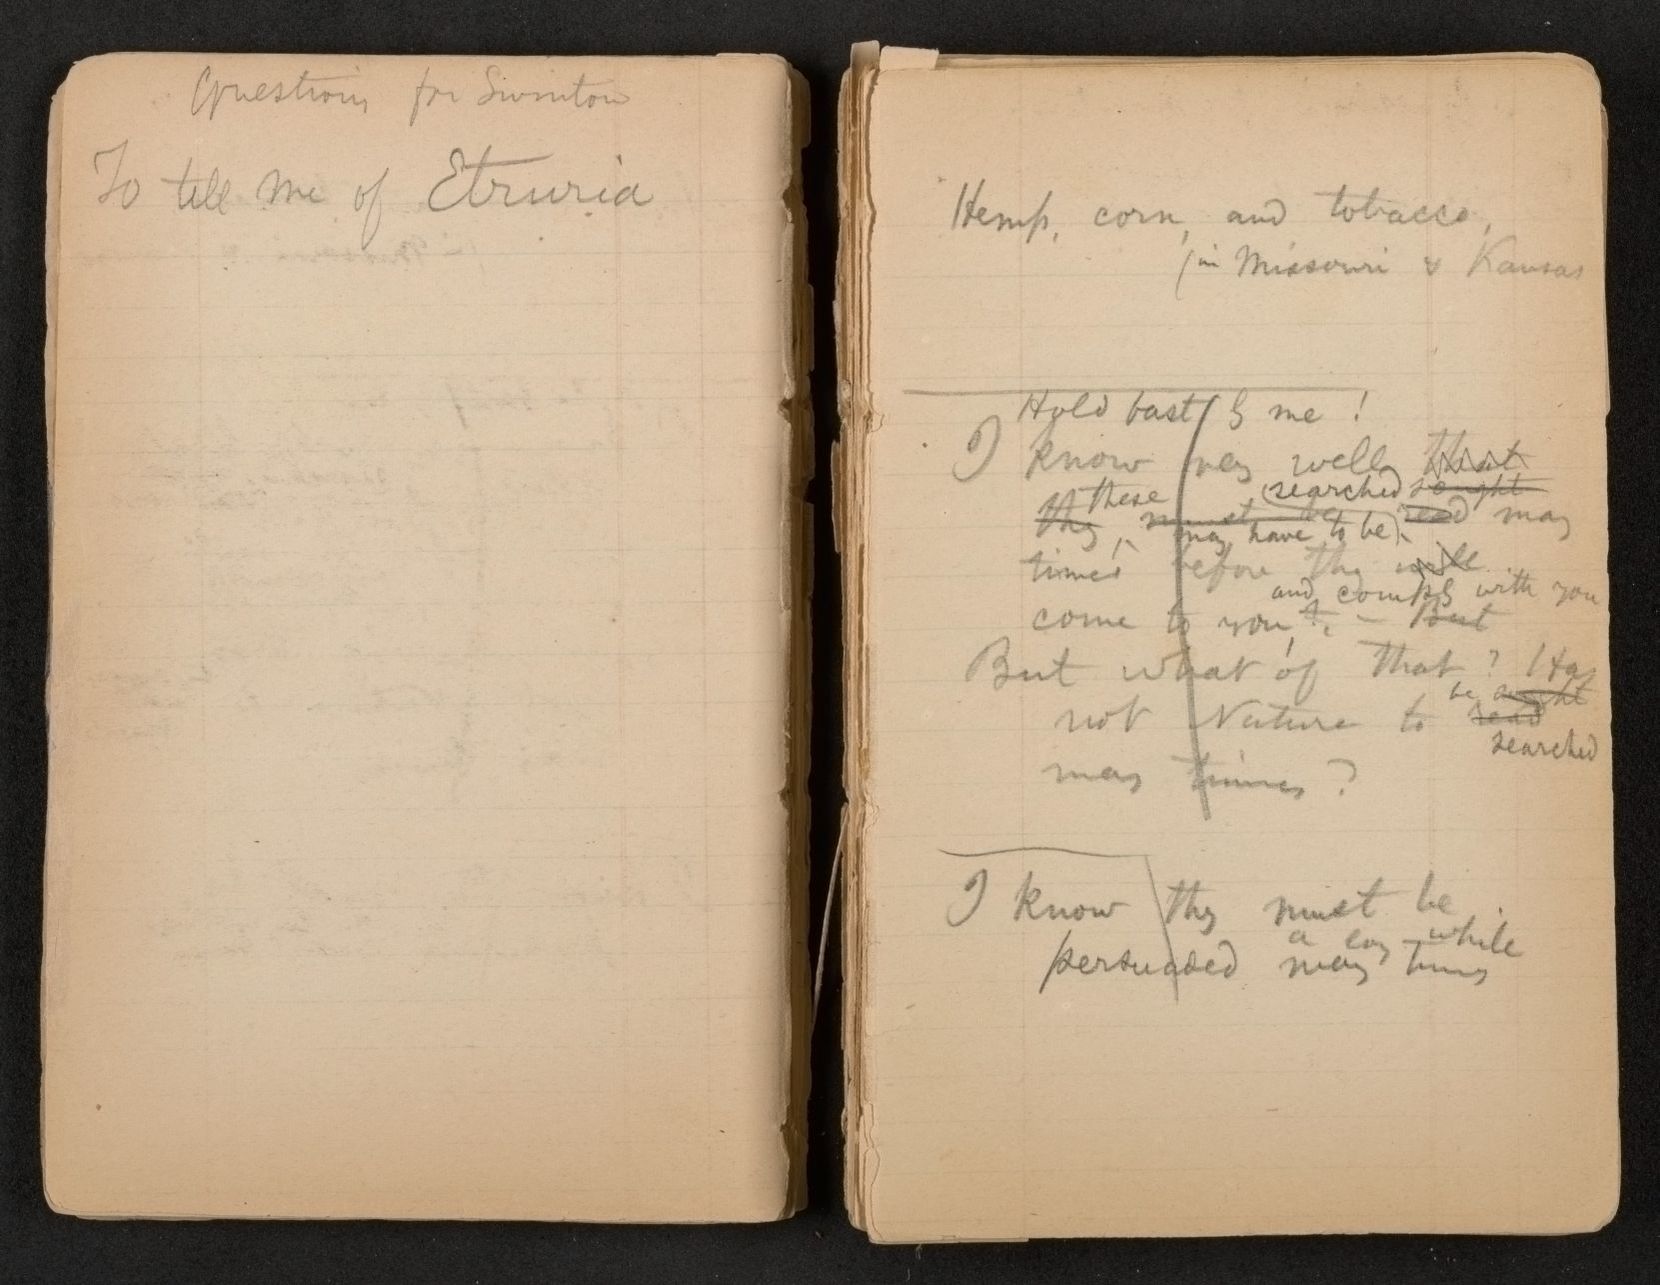 Questions for Swinton
To tell me of Etruria
Hemp, corn, and tobacco,
(in Missouri & Kansas
Hold fast to me!
I know very well, that
these searched sought
they, must be read many
may have to be
times before they will
and comply with you
come to you, — But
But what of that? Has
not Nature to be sought
read
searched
many times?
I know they must be
a long while
persuaded many times